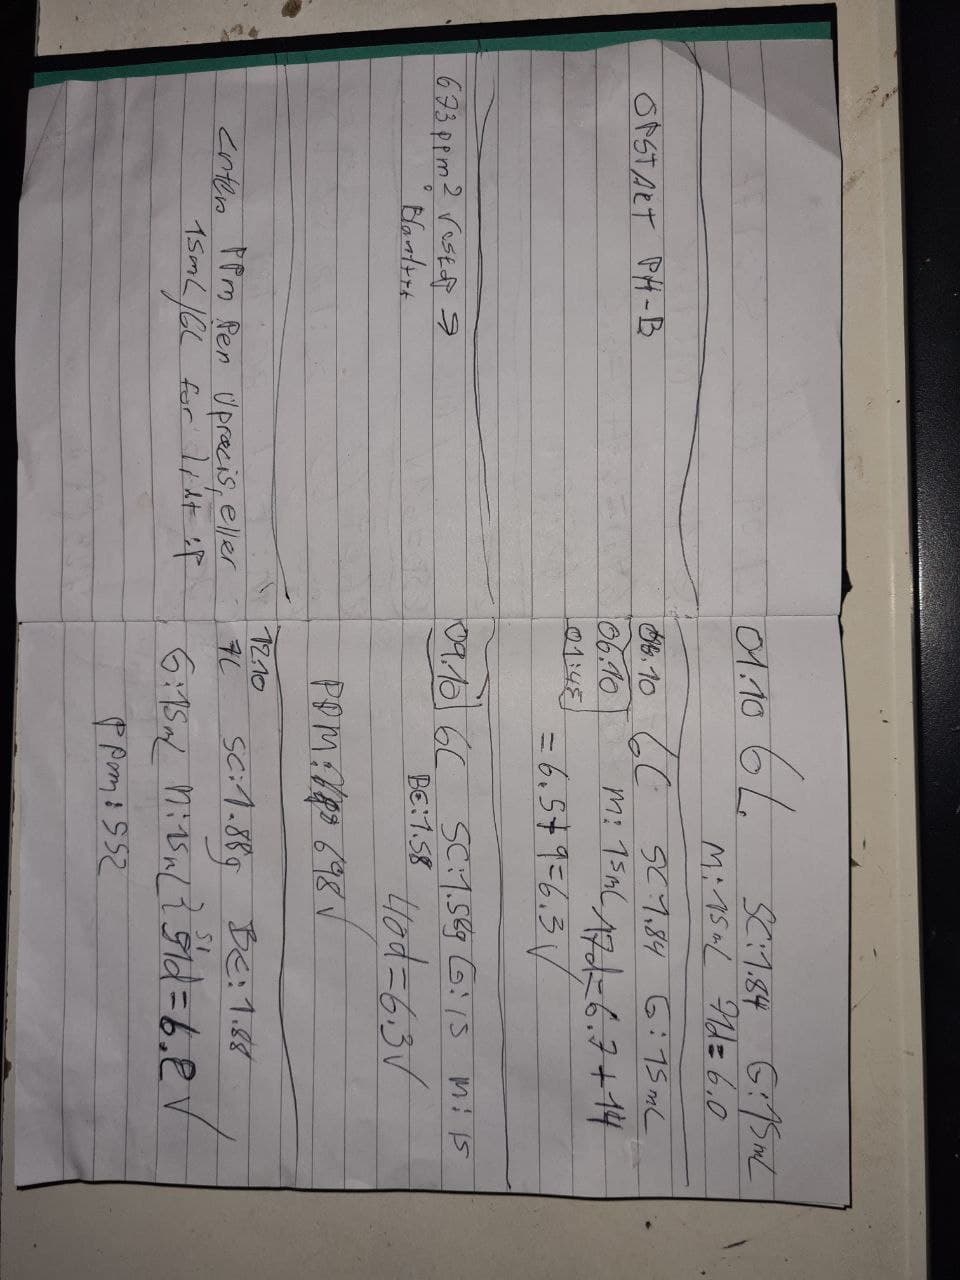 01.10 6L SC:1.84 G:15mL
M:15mL 71d=6.0
OPSTART PH-B
06.10 6L SC:1.84 G:15mL
06.10 M:15mL 17d=6.7+14
01:45
=6.5+9=6.3√
673ppm² rest →
09.10 6L SC:1.58g G:15 M:15
BC:1.58
40d=6.3√
PPM: 698√
12.10
7L SC:1.88g BC:1.88
Enten PPM Pen Upræcis, eller
15mL/6L for lidt :P
G:15mL M:15mL} 51d=6.2√
PPm:552